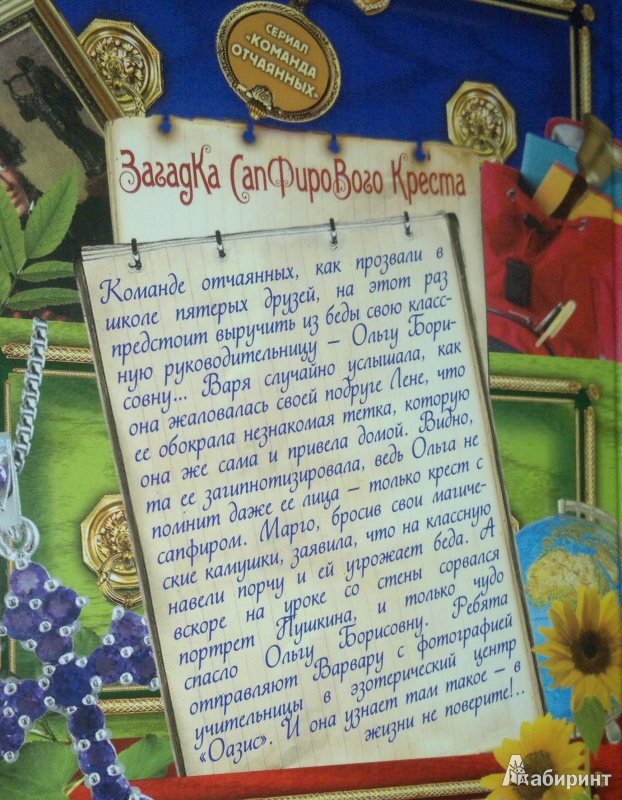 СЕРИАЛ
«КОМАНДА
ОТЧАЯННЫХ»
Загадка Сапфирового Креста
Команде отчаянных, как прозвали в
школе пятерых друзей, на этот раз
предстоит выручить из беды свою класс-
ную руководительницу – Ольгу Бори-
совну... Варя случайно услышала, как
она жаловалась своей подруге Лене, что
ее обокрала незнакомая тетка, которую
она же сама и привела домой. Видно,
та ее загипнотизировала, ведь Ольга не
помнит даже ее лица – только крест с
сапфиром. Марго, бросив свои магиче-
ские камушки, заявила, что на классную
навели порчу и ей угрожает беда. А
вскоре на уроке со стены сорвался
портрет Пушкина, и только чудо
спасло Ольгу Борисовну. Ребята
отправляют Варвару с фотографией
учительницы в эзотерический центр
«Оазис». И она узнает там такое – в
жизни не поверите!..
Лабиринт